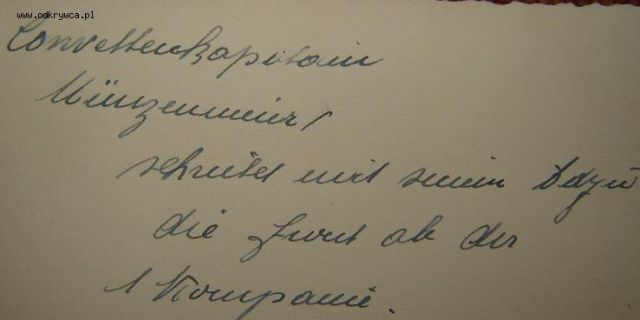 www.odkrywca.pl
Corvettenkapitain
Münzenmeier/
schreitet mit seinem
die Front ab der
1 Kompanie.